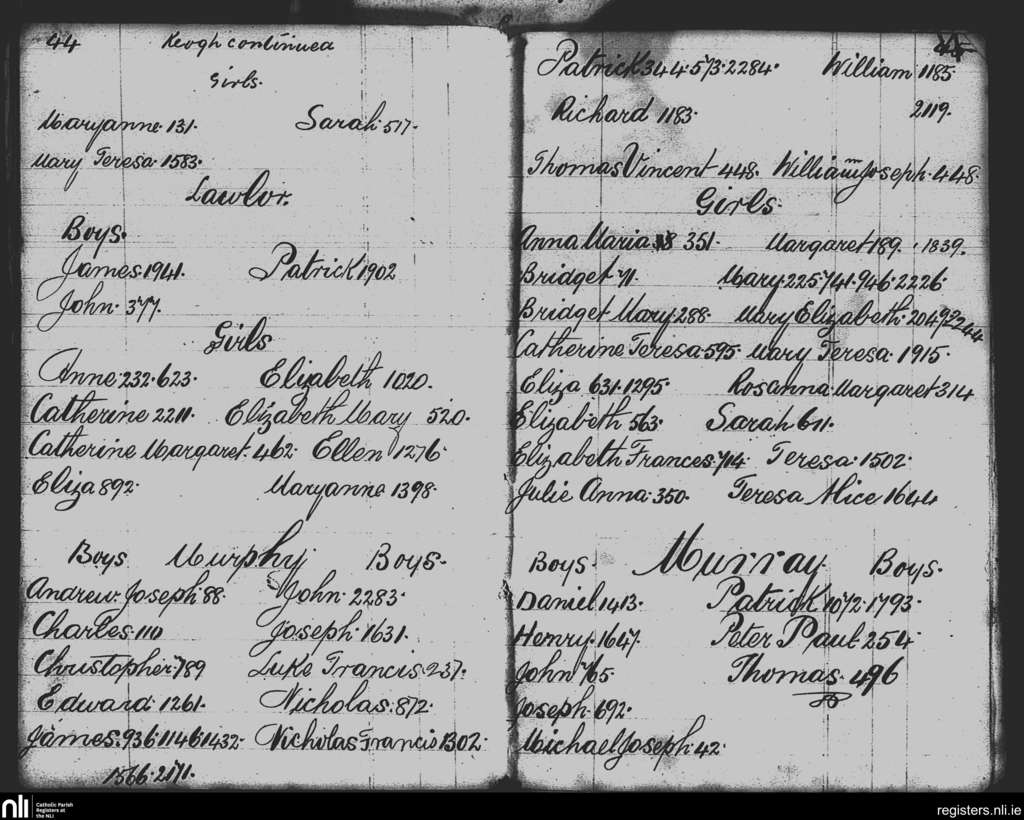 44 Keogh continued
Girls.
Maryanne 131. Sarah 517.
Mary Teresa 1583.
Lawlor.
Boys.
James 1941. Patrick 1902
John 377.
Girls
Anne 232. 623. Elizabeth 1020.
Catherine 2211. Elizabeth Mary 520.
Catherine Margaret. 462. Ellen 1276.
Eliza 892. Maryanne 1398.
Boys Murphy Boys.
Andrew Joseph 88. John 2283.
Charles 110 Joseph 1631.
Christopher 789 Luke Francis 237.
Edward 1261. Nicholas 872.
James. 936. 1146. 1432. Nicholas Francis 1302.
1566. 2171.
44
Patrick 344. 573. 2284. William 1185.
Richard 1183. 2119.
Thomas Vincent 448. William Joseph. 448.
Girls.
Anna Maria 351. Margaret 189. 1839.
Bridget 71. Mary 225. 741. 946. 2226.
Bridget Mary 288. Mary Elizabeth. 2049. 2244
Catherine Teresa 595. Mary Teresa. 1915.
Eliza 631. 1295. Rosanna Margaret 314
Elizabeth 563. Sarah 611.
Elizabeth Frances 714. Teresa. 1502.
Julie Anna. 350. Teresa Alice 1644
Boys. Murray. Boys.
Daniel 1413. Patrick 1072. 1793.
Henry. 1647. Peter Paul 254.
John 765. Thomas. 496
Joseph. 692.
Michael Joseph 42.
nli Catholic Parish
Registers at
the NLI
registers.nli.ie